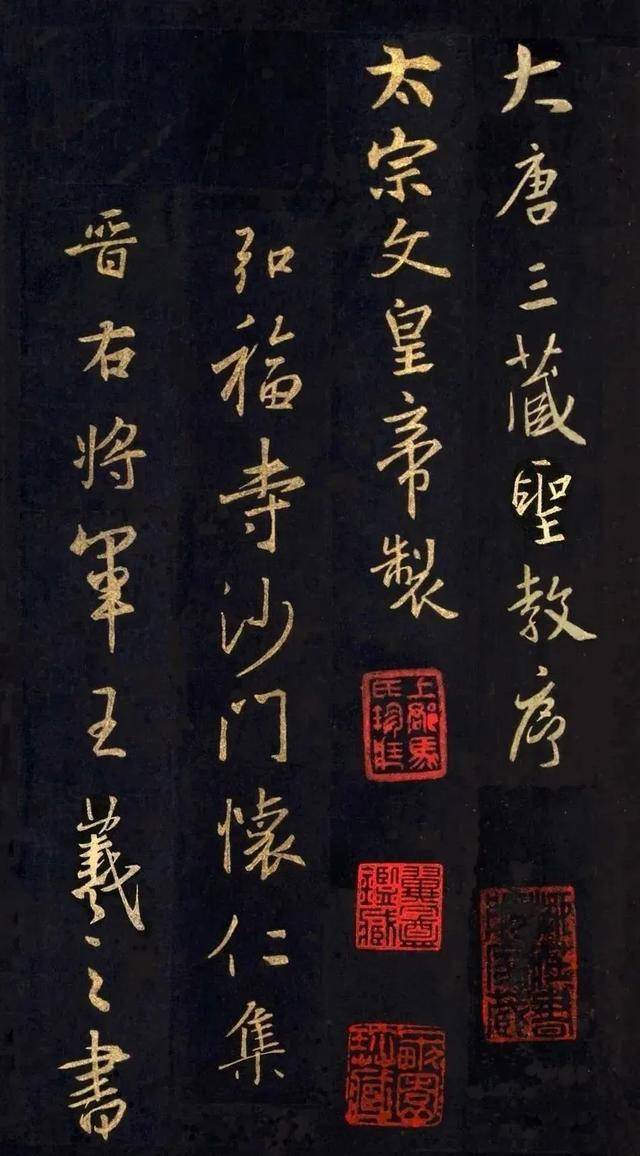 大唐三藏聖教序
太宗文皇帝製
弘福寺沙门懷仁集
晋右将軍王羲之書